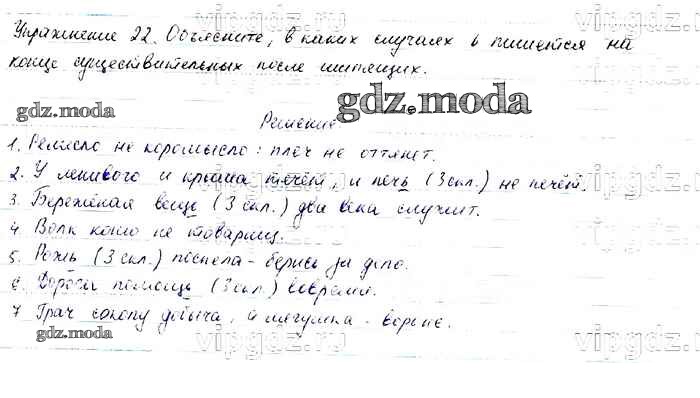 vipgdz.com
Упражнение 22. Объясните, в каких случаях ь пишется на
конце существительных после шипящих.
gdz.moda
gdz.moda
Решение
1. Ремесло не коромысло: плеч не оттянет.
2. У ленивого и крыша течёт, и печь (3 скл.) не печёт.
vipgdz.com
3. Бережёная вещь (3 скл.) два века служит.
4 Волк коню не товарищ.
5. Рожь (3 скл.) поспела - берись за дело.
6. Дорога помощь (3 скл.) вовремя.
7 Грач соколу добыча, а лягушка - вороне.
gdz.moda
vipgdz.com